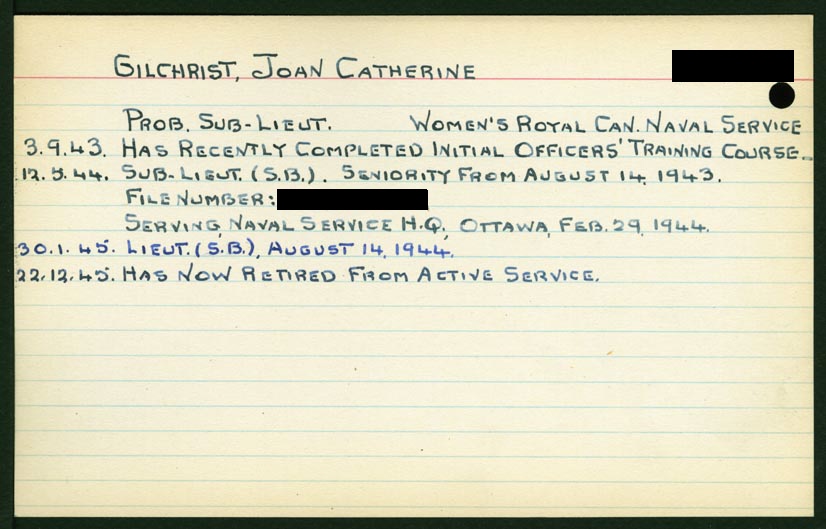 GILCHRIST, JOAN CATHERINE
PROB. SUB-LIEUT. WOMEN'S ROYAL CAN. NAVAL SERVICE
3.9.43. HAS RECENTLY COMPLETED INITIAL OFFICERS' TRAINING COURSE.
12.5.44. SUB-LIEUT. (S.B.). SENIORITY FROM AUGUST 14, 1943.
FILE NUMBER:
SERVING, NAVAL SERVICE H.Q., OTTAWA, FEB. 29, 1944.
30.1.45. LIEUT. (S.B.), AUGUST 14, 1944.
22.12.45. HAS NOW RETIRED FROM ACTIVE SERVICE.